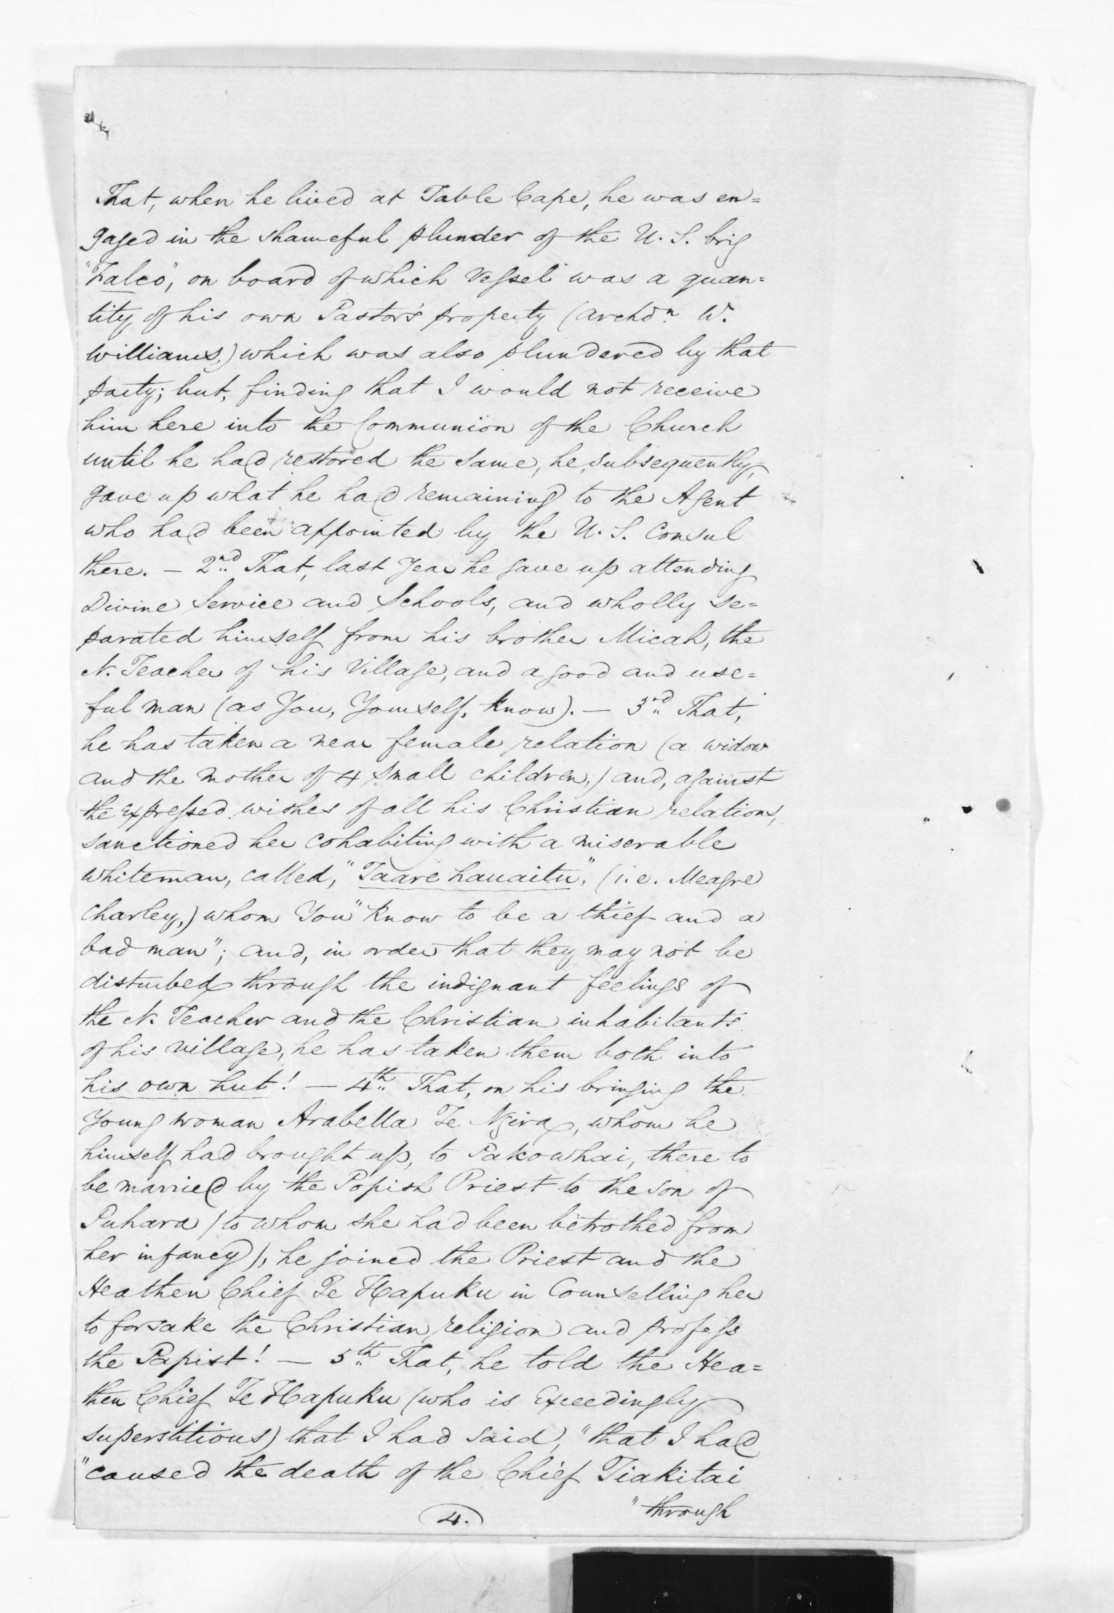 That, when he lived at Table Cape, he was en=
gaged in the shameful plunder of the U. S. brig
"Falco", on board of which Vessel was a quan=
tity of his own Pastor's property (Archdn. W.
Williams,) which was also plundered by that
party; but, finding that I would not receive
him here into the Communion of the Church
until he had restored the same, he, subsequently,
gave up what he had remaining to the Agent
who had been appointed by the U. S. Consul
there. — 2nd. That, last Year he gave up attending
Divine Service and Schools, and wholly se=
parated himself from his brother Micah, the
N. Teacher of his Village, and a good and use=
ful man (as You, Yourself, know). — 3rd. That,
he has taken a near female relation (a widow
and the mother of 4 small children,) and, against
the expressed wishes of all his Christian relations,
sanctioned her cohabiting with a miserable
whiteman, called, "Taare hauaitu", (i.e. Meagre
Charley,) whom You "know to be a thief and a
bad man"; and, in order that they may not be
disturbed through the indignant feelings of
the N. Teacher and the Christian inhabitants
of his village, he has taken them both into
his own hut! — 4th. That, on his bringing the
young woman Arabella Te Ngira, whom he
himself had brought up, to Pakowhai, there to
be married by the Popish Priest to the son of
Puhara (to whom she had been betrothed from
her infancy), he joined the Priest and the
Heathen Chief Te Hapuku in Counselling her
to forsake the Christian religion and profess
the Papist! — 5th. That, he told the Hea=
then Chief Te Hapuku (who is Exceedingly
superstitious) that I had said, "that I had
"caused the death of the Chief Tiakitai
"through
4.